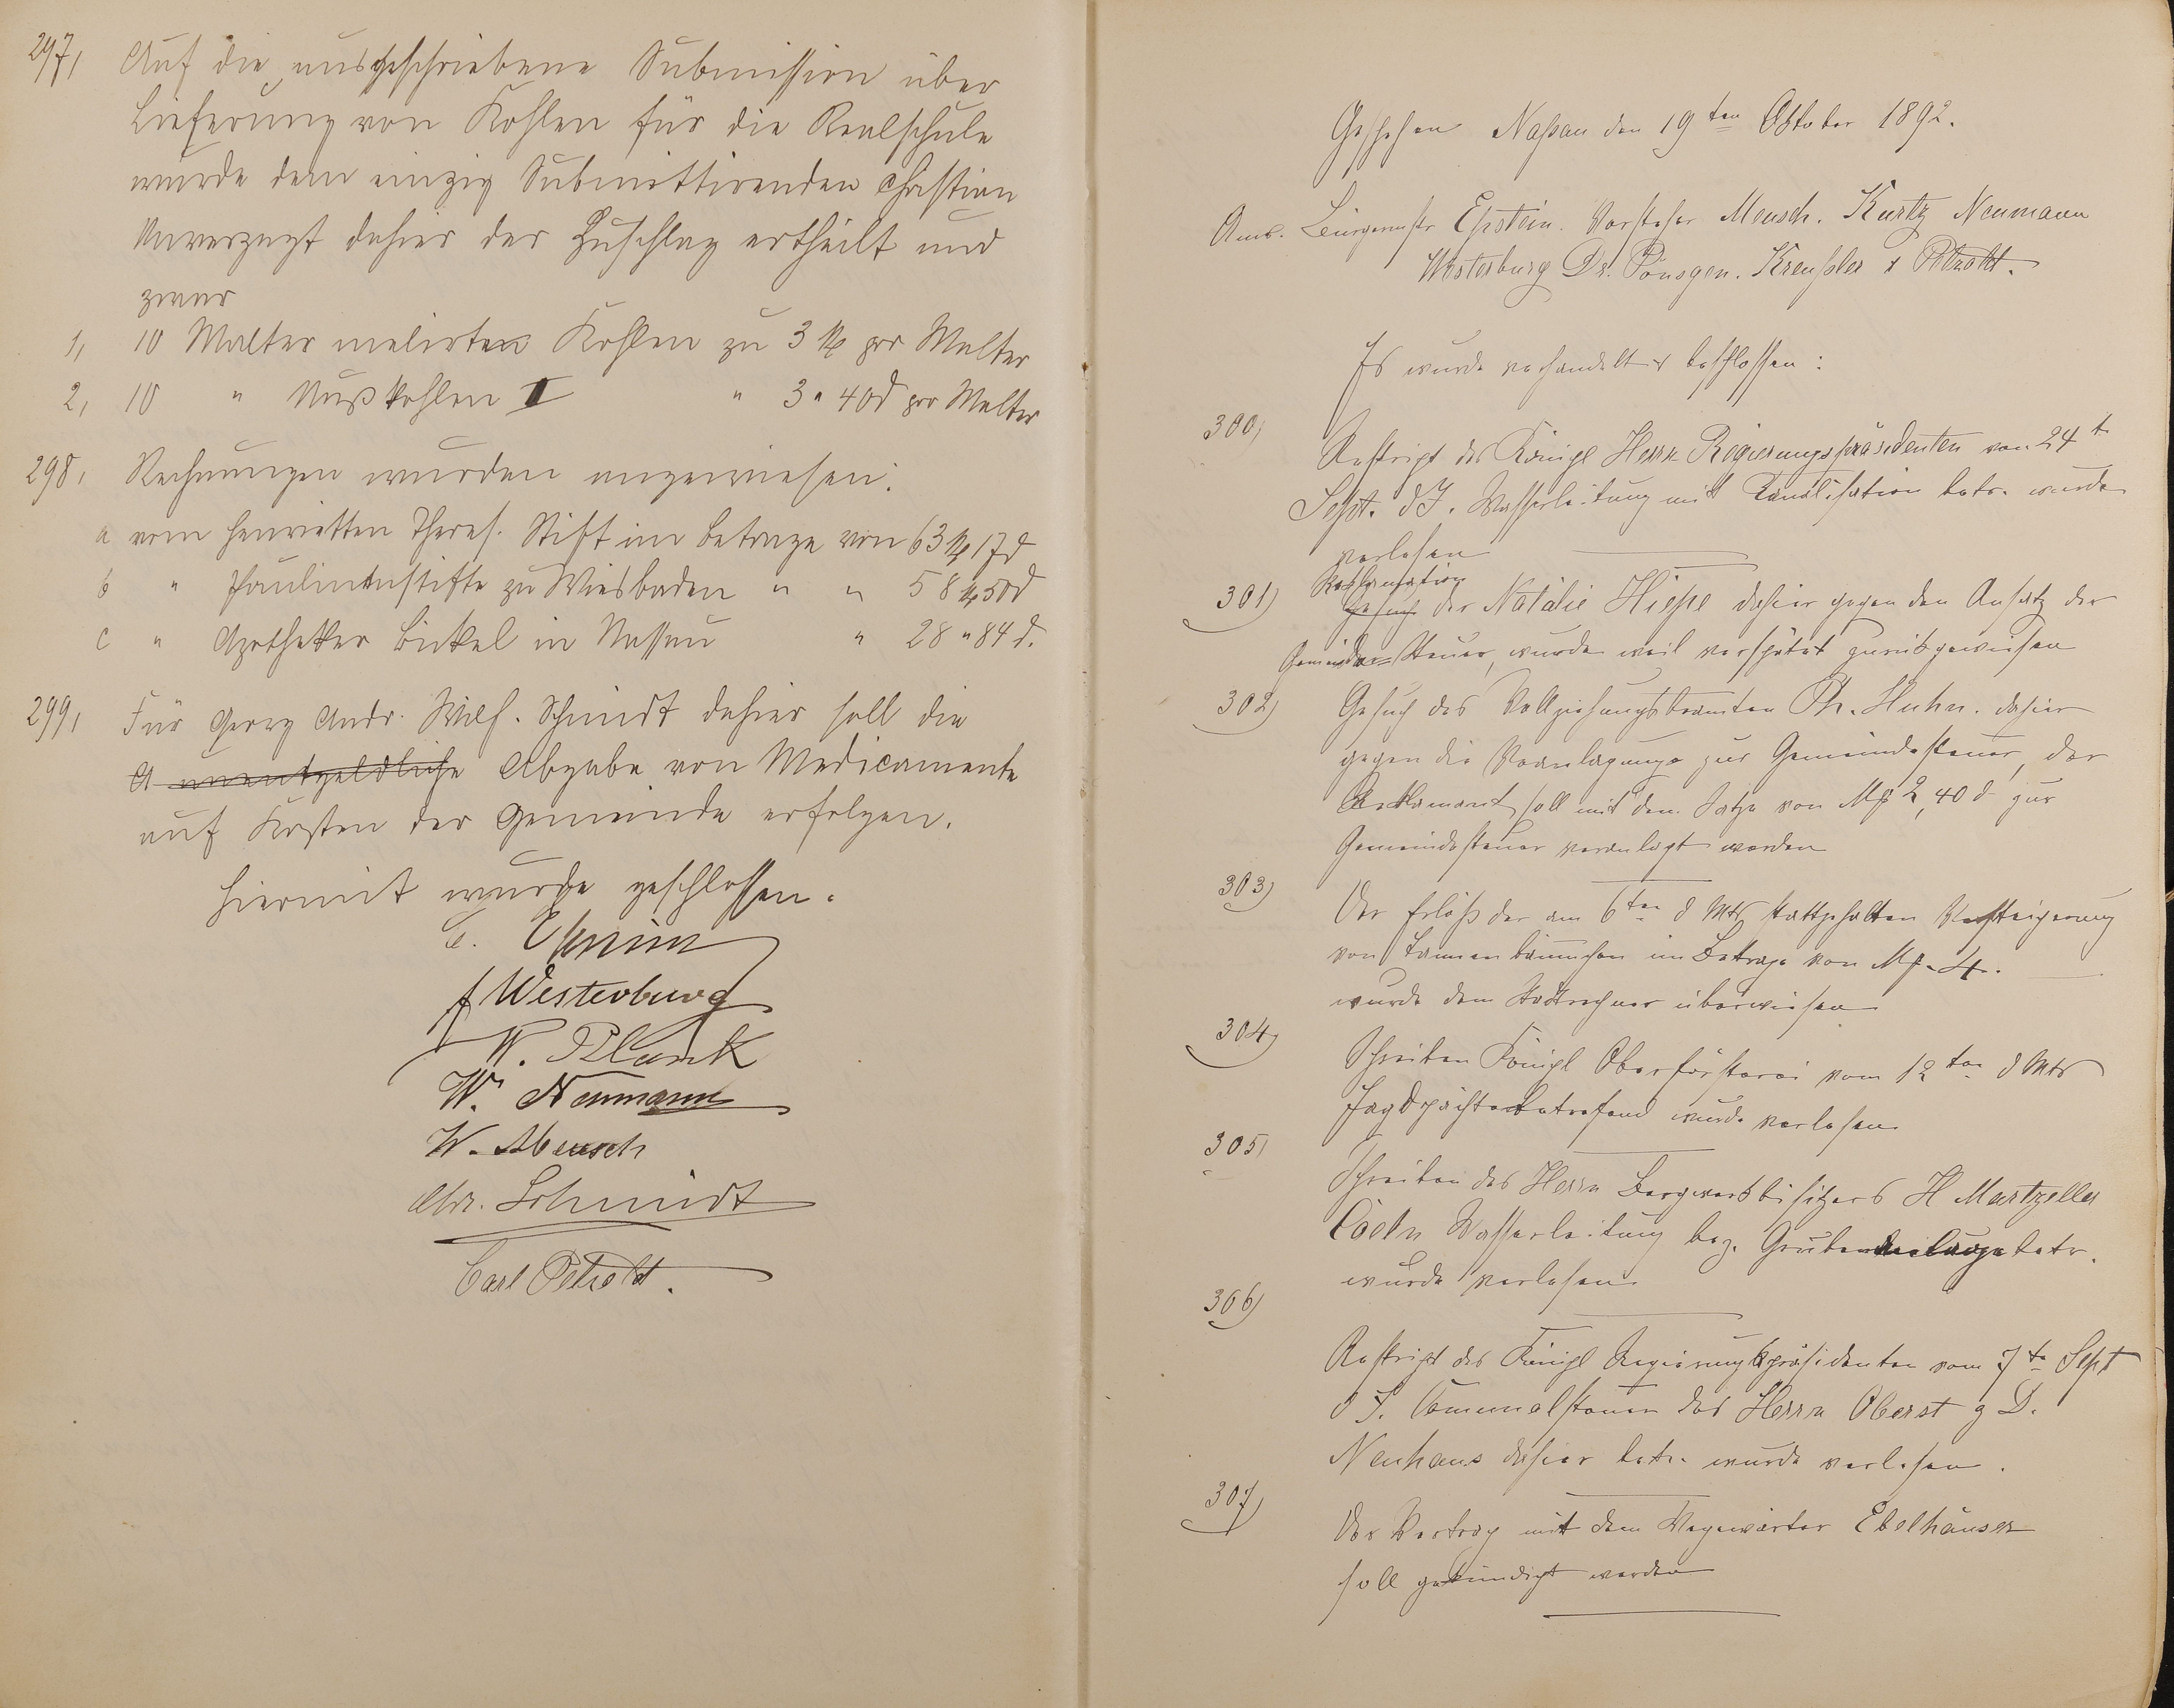 297, Auf die ausgeschriebene Submission über
Lieferung von Kohlen für die Realschule
wurde dem einzig Submittirenden Christian
Unverzagt dahier der Zuschlag ertheilt und
zwar
1, 10 Malter melirten Kohlen zu 3 M pr Malter
2, 10 " Nußkohlen II " 3 " 40 d pr Malter
298, Rechnungen wurden angewiesen:
a vom Henrietten Theres. Stift im Betrage von 63 M 17 d
b " Paulinenstifte zu Wiesbaden " " 58 M 50 d
c " Apotheker Bickel in Nassau " 28 " 84 d.
299, Für Georg Andr. Wilh. Schmidt dahier soll die
unentgeldliche Abgabe von Medicamente
auf Kosten der Gemeinde erfolgen.
Hiermit wurde geschlossen.
C. Epstein
f Westerburg
W. Plank
W. Neumann
W. Mensch
Chr. Schmidt
Carl Petroll.
Geschehen Naßau den 19ten Oktober 1892.
Anw. Bürgermstr Epstein. Vorsteher Mensch. Kurtz Neumann
Westerburg Dr. Pönsgen. Kreußler & Petroll.
Es wurde verhandelt & beschlossen:
300, Reskript des Königl Herrn Regierungspräsidenten von 24t
Sept. d J. Wasserleitung mit Canalisation betr. wurde
verlesen
Reklamation
301) Gesuch der Natalie Hiepe dahier gegen den Ansatz der
Gemeinde-Steuer, wurde weil verspätet zurückgewiesen
302) Gesuch des Vollziehungsbeamten Ph. Huhn. dahier
gegen die Veranlagung zur Gemeindesteuer, der
Reklamant soll mit dem Satze von M 2,40 d zur
Gemeindesteuer veranlagt werden
303) Der Erlös der am 6ten d Mts stattgehalten Versteigerung
von Tannenbäumchen im Betrage von M 4.
wurde dem Stadtrechner überwiesen
304, Schreiben Königl Oberförsterei vom 12ten d Mts
Jagdpachte betreffend wurde verlesen
305, Schreiben des Herrn Bergwerksbesitzers H Martzeller
Coeln Wasserleitung bez. Gruben betr.
wurde verlesen
306) Reskript des Königl Regierungspräsidenten vom 7te Sept
d J. Communalsteuer des Herrn Oberst z D.
Neuhaus dahier betr. wurde verlesen.
307) Der Vertrag mit dem Wegewärter Ebelhäuser
soll gekündigt werden